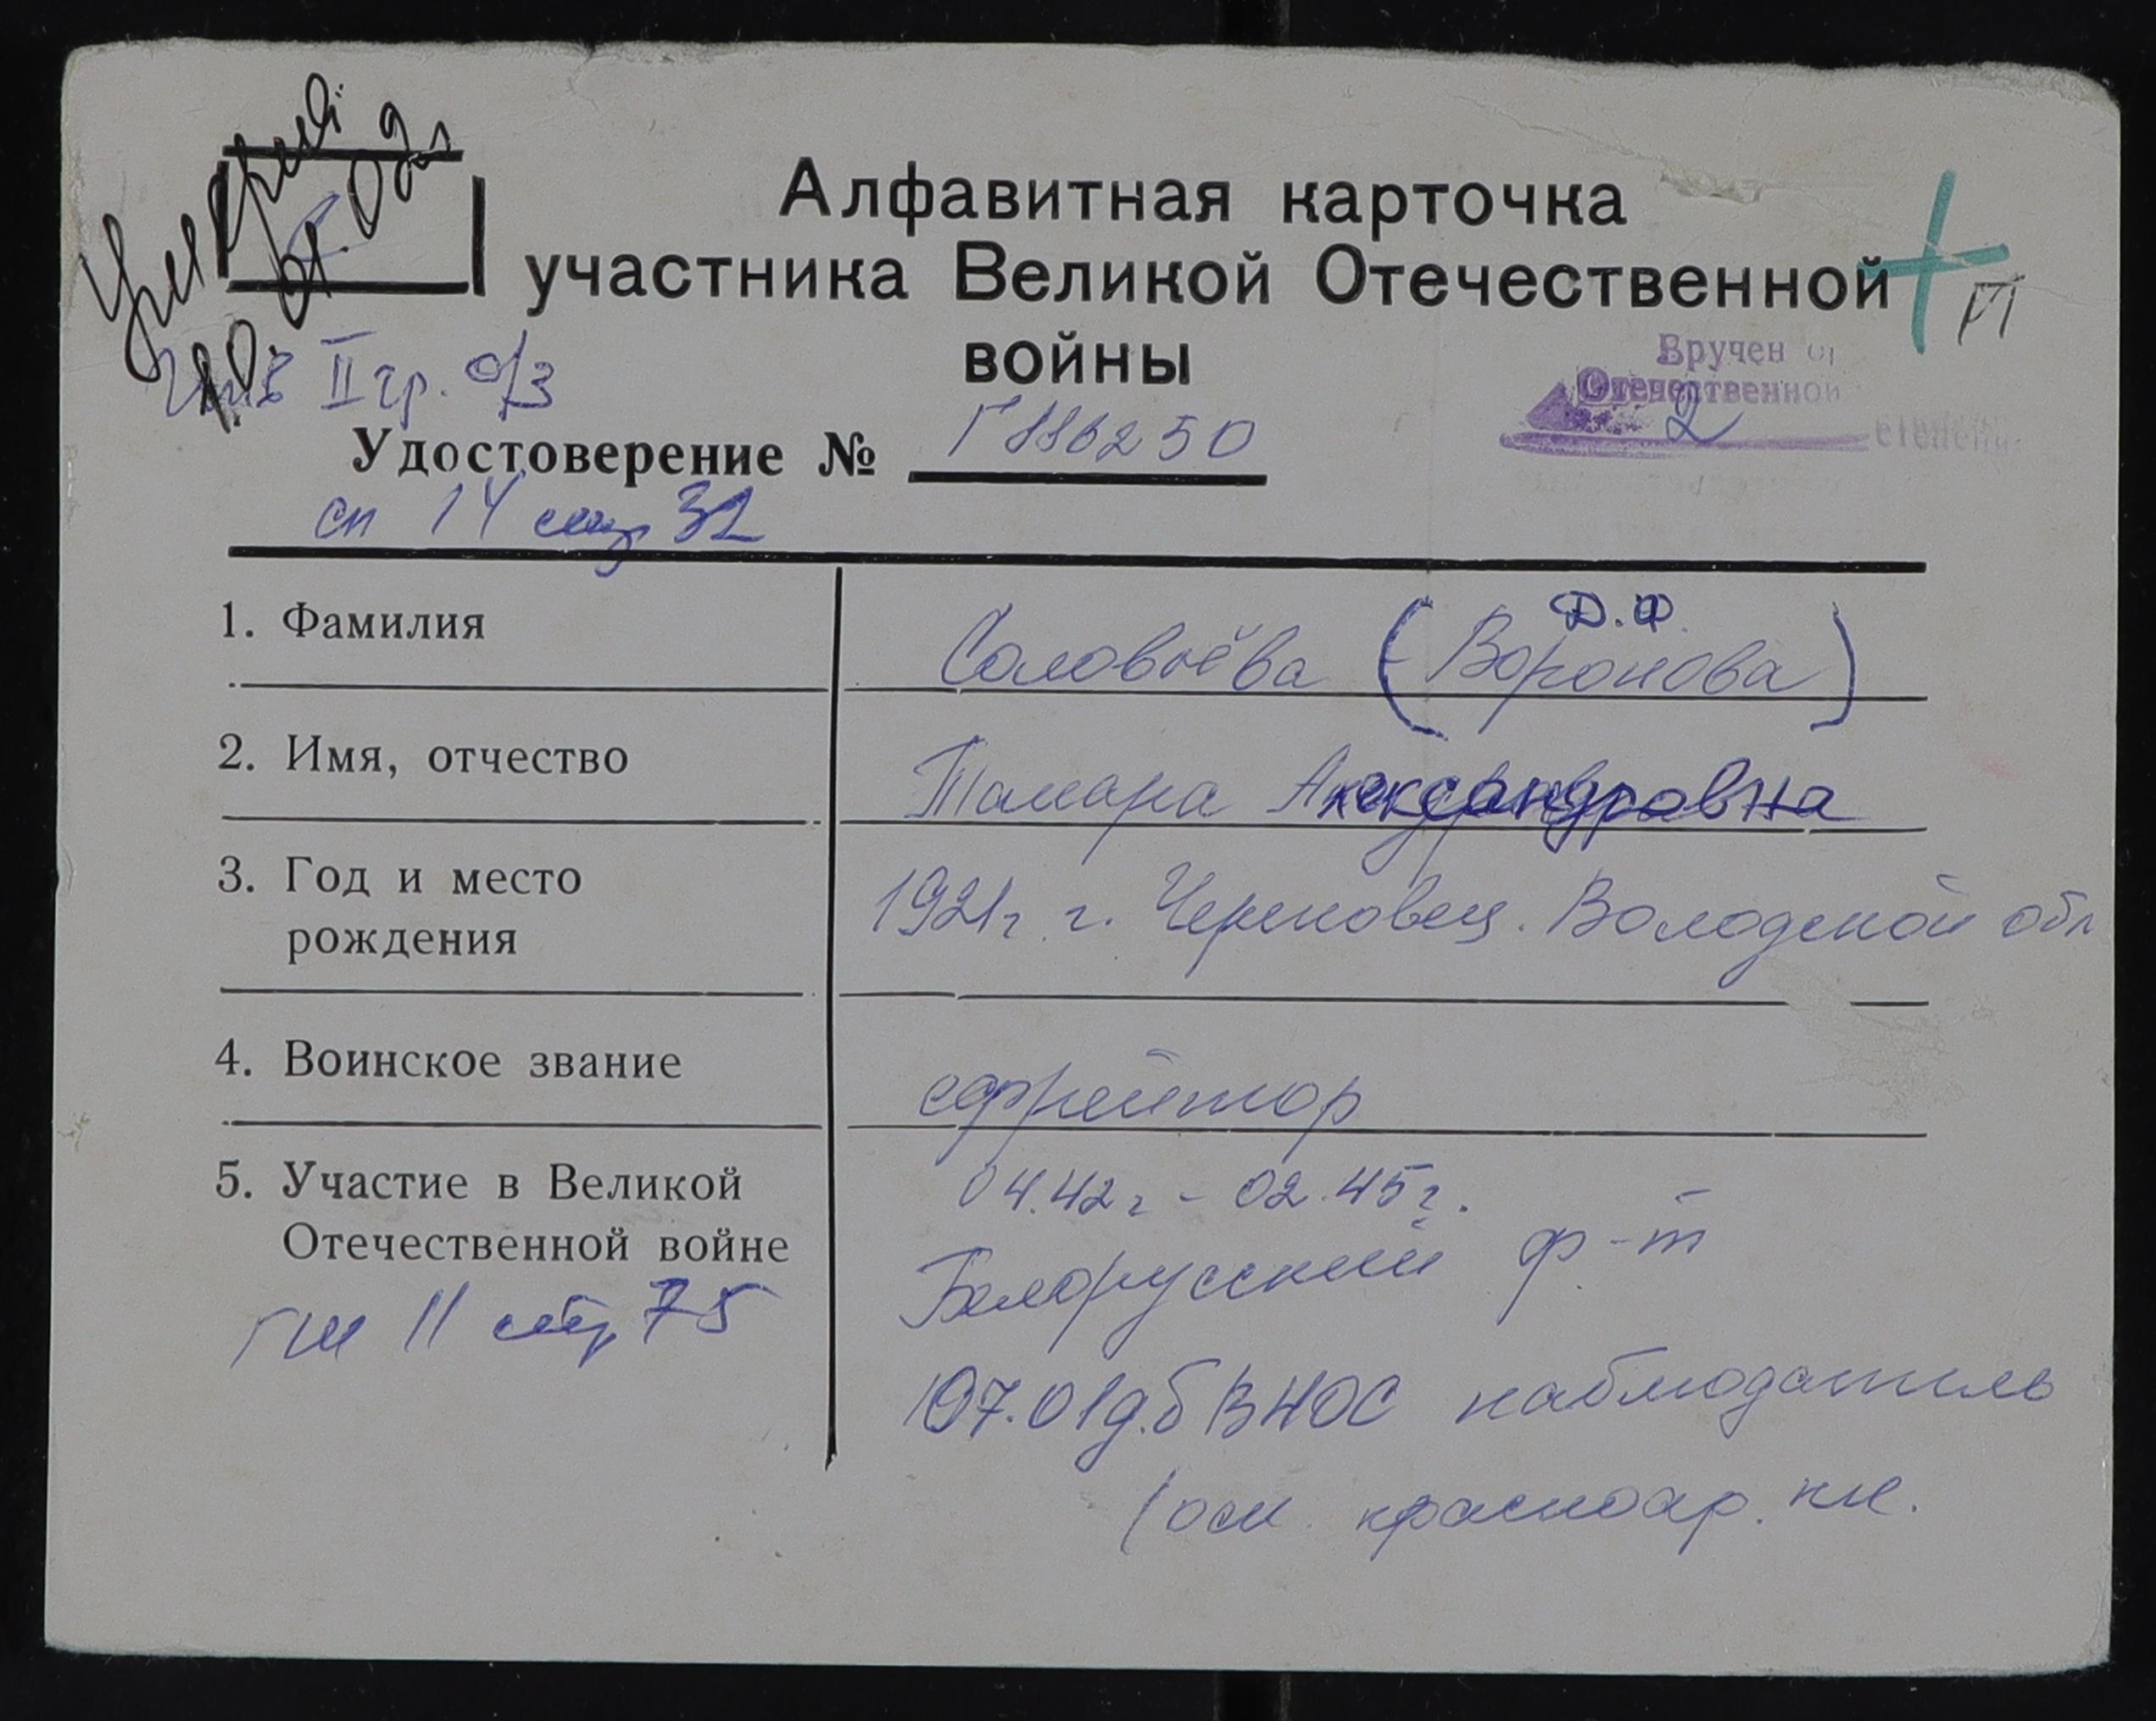 Умерший
10.01.09г
Алфавитная карточка
участника Великой Отечественной
войны
Инв II гр. о/з
Вручен
Отечественной
2 степени
Удостоверение № Г 886250
сп 14 стр 32
1. Фамилия
Д.Ф.
Соловьёва (Воронова)
2. Имя, отчество
Тамара Александровна
3. Год и место
рождения
1921г. г. Череповец. Вологдской обл
4. Воинское звание
ефрейтор
5. Участие в Великой
Отечественной войне
04.42г - 02.45г.
Белорусский ф-т
107.01д.б ВНОС наблюдатель
(осн. красноар. кн.
11 стр 75